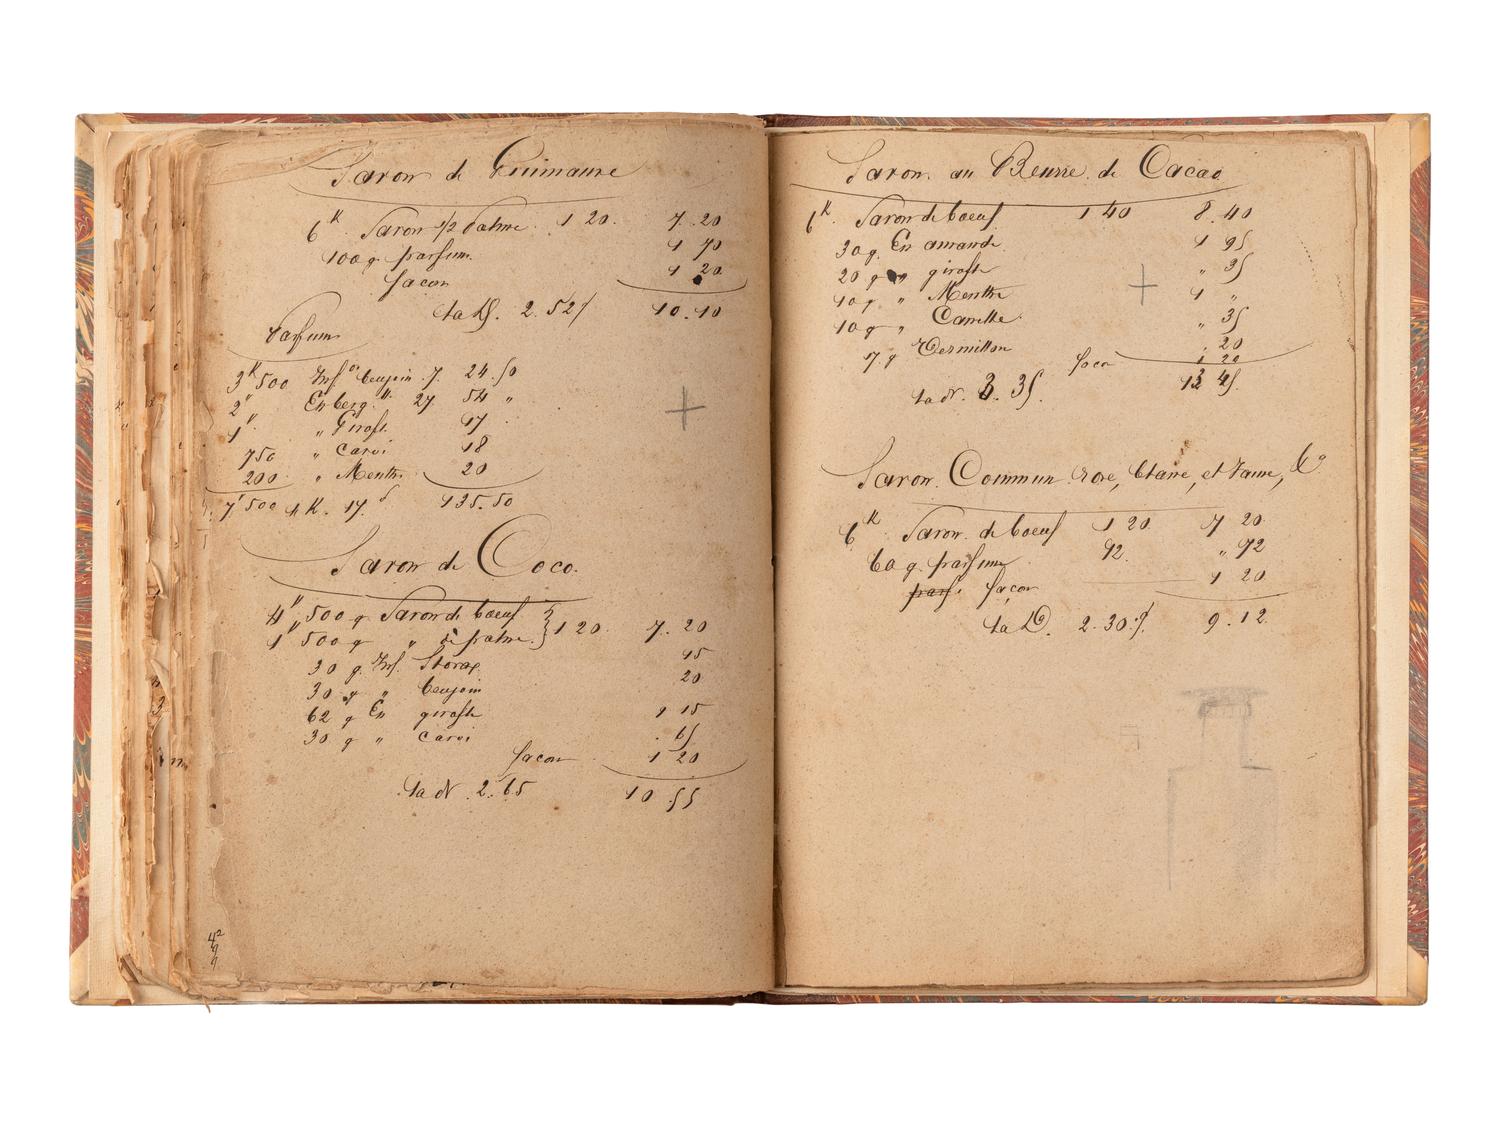 Savon de Guimauve
6K Savon 1/2 Palme 1 20. 7. 20
100 g parfum 1 70
façon 1 20
la Dz. 2. 52 1/2 10. 10
Parfum
3K 500 Inf on benjoin 7. 24. 50
2" Es berg. " 27 54 "
1" " Girofl. 17
750 " Carvi 18
200 " Menthe 20
7K 500 1K. 17. 135. 50
Savon de Coco.
4" 500 g Savon de boeuf } 1 20. 7. 20
1" 500 g " de palme }
30 g. Inf. Storax 15
30 g " benjoin 20
62 g Es girofle 1 15
30 g " carvi . 65
façon 1 20
la Dz. 2. 65 10 55
Savon au Beurre de Cacao
6K. Savon de boeuf 1 40 8. 40
30 g. Es amande 1 95
20 g " girofle " 35
10 g " Menthe 1 "
10 g " Canelle " 35
7. g Vermillon . 20
façon 1 20
la Dz. 3. 35. 13 45.
Savon Commun rose, blanc, et Jaune, &a
6K Savon de boeuf 1 20 7 20
60 g. parfum 12. " 72
parf. façon 1 20
la Dz. 2. 30. 9. 12